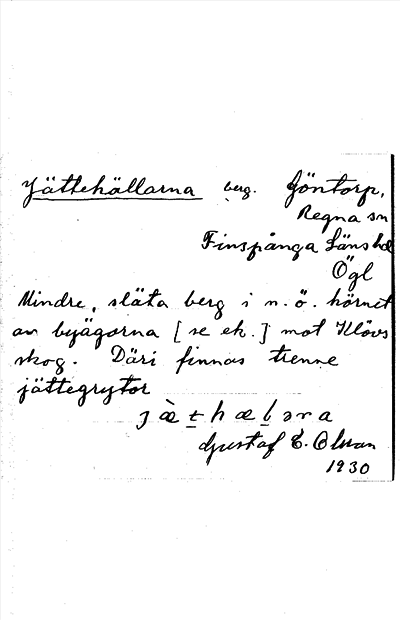 Jättehällarna berg. Göntorp,
Regna sn
Finspånga Läns hd
Ögl
Mindre, släta berg i n.ö. hörnet
av byägorna [se ek.] mot Klövs
skog. Däri finnas trenne
jättegrytor
Gustaf E. Olsson
1930